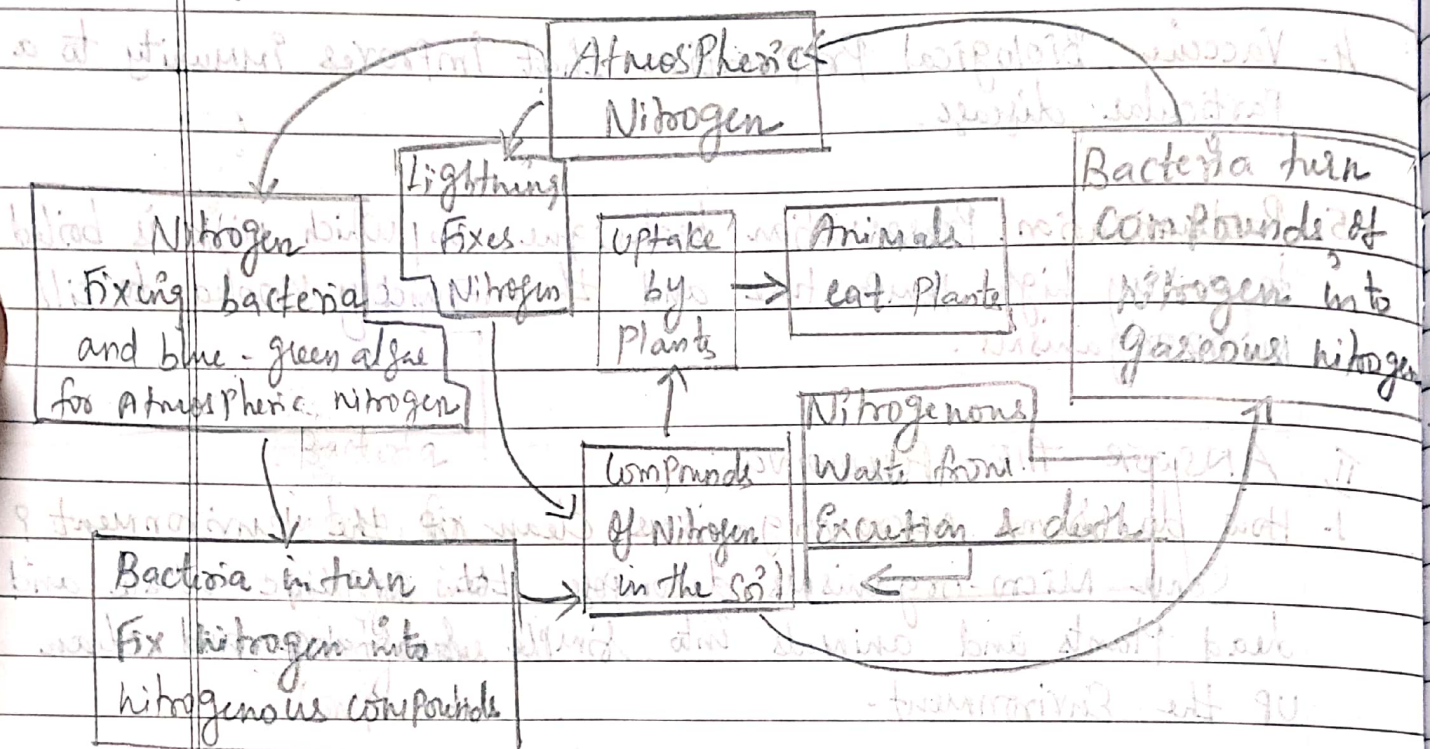 Atmospheric
Nitrogen
Lightning
Fixes
Nitrogen
Nitrogen
Fixing bacteria
and blue-green algae
for Atmospheric nitrogen
Uptake
by
Plants
Animals
eat Plants
Bacteria turn
Compounds of
Nitrogen into
Gaseous nitrogen
Nitrogenous
Waste from
Excretion & death
Compounds
of Nitrogen
in the soil
Bacteria in turn
Fix nitrogen into
nitrogenous compounds